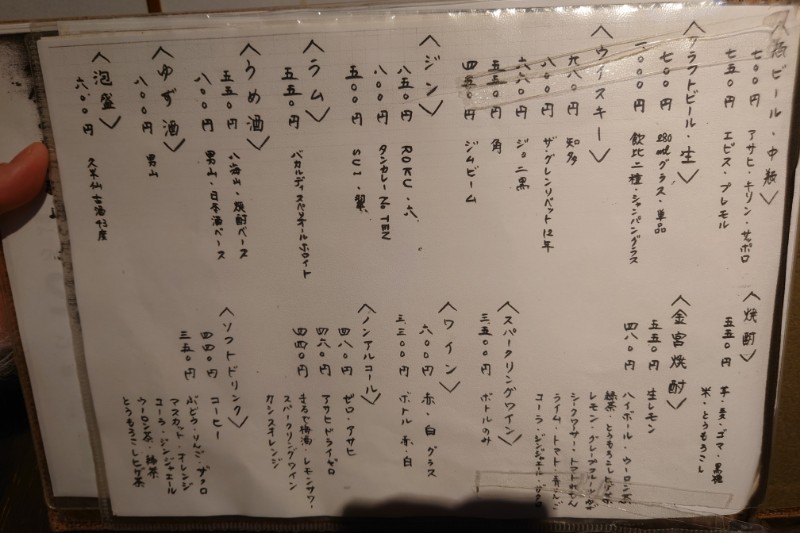 〈瓶ビール・中瓶〉
七〇〇円 アサヒ・キリン・サッポロ
七五〇円 エビス・プレモル
〈クラフトビール・生〉
七〇〇円 280mlグラス・単品
一、〇〇〇円 飲比二種・シャンパングラス
〈ウイスキー〉
九八〇円 知多
八〇〇円 ザ・グレンリベット12年
六六〇円 ジョニ黒
五五〇円 角
四五〇円 ジムビーム
〈ジン〉
八五〇円 ROKU・六
八〇〇円 タンカレーNo.TEN
五〇〇円 SUI・翠
〈ラム〉
五五〇円 バカルディスペリオールホワイト
〈うめ酒〉
五五〇円 八海山・焼酎ベース
八〇〇円 男山・日本酒ベース
〈ゆず酒〉
八〇〇円 男山
〈泡盛〉
六〇〇円 久米仙古酒
〈焼酎〉
五五〇円 芋・麦・ゴマ・黒糖
米・とうもろこし
〈金宮焼酎〉
五五〇円 生レモン
四八〇円 ハイボール・ウーロン茶
緑茶・とうもろこしヒゲ茶
レモン・グレープフルーツ
シークワーサー・トマト
ライム・トマト
コーラ・ジンジャエール・ザクロ
〈スパークリングワイン〉
三、五〇〇円 ボトルのみ
〈ワイン〉
六〇〇円 赤・白 グラス
三、三〇〇円 ボトル 赤・白
〈ノンアルコール〉
四八〇円 ゼロ・アサヒ
四八〇円 アサヒドライゼロ
四四〇円 まるで梅酒・レモンサワー
スパークリングワイン
カシスオレンジ
〈ソフトドリンク〉
四四〇円 コーヒー
三五〇円 ぶどう・リンゴ・ザクロ
マスカット・オレンジ
コーラ・ジンジャエール
ウーロン茶・緑茶
とうもろこしヒゲ茶